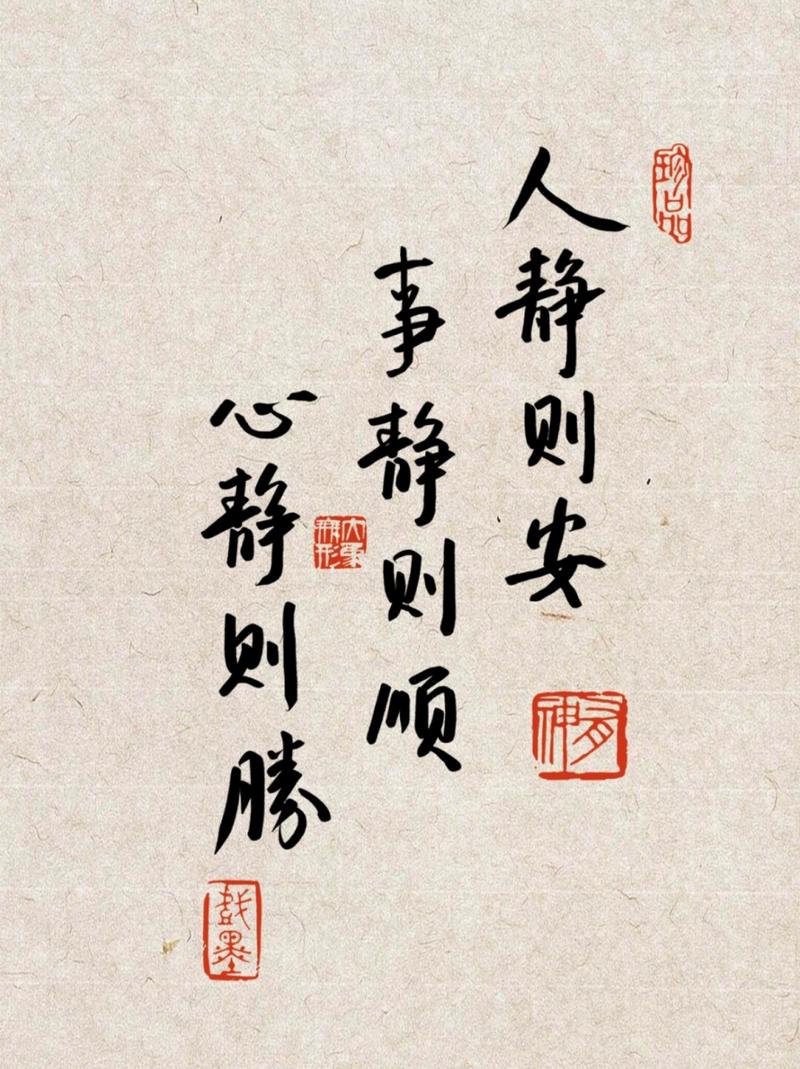 人静则安
事静则顺
心静则勝
珍品
有神
大象無形
戲墨